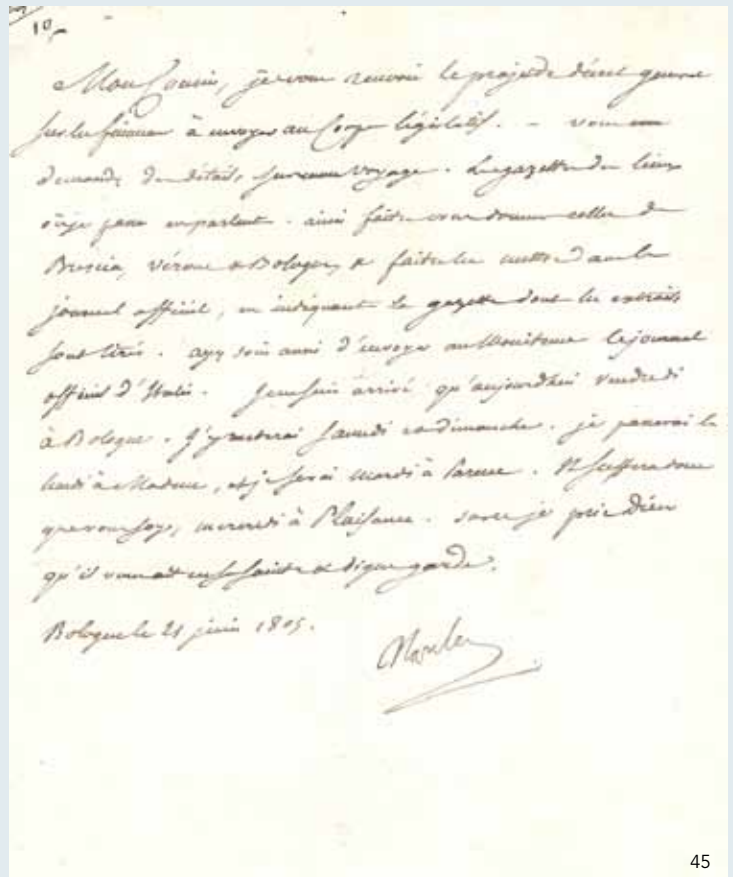 10
Mon Cousin, je vous renvoie le projet de décret general
sur les finances à envoyer au Corps législatif. - vous me
demandez des détails sur mon voyage. Les gazettes des lieux
où je passe en parlent. ainsi faites vous donner celles de
Brescia, Vérone & Bologne, & faites les mettre dans le
journal officiel, en indiquant la gazette dont les extraits
sont tirés. ayez soin aussi d'envoyer au Moniteur le journal
officiel d'Italie. Je ne suis arrivé qu'aujourdhui vendredi
à Bologne. J'y resterai Samedi et dimanche. je passerai le
lundi à Modene, et je serai mardi à Parme. Il suffira donc
que vous soyez mercredi à Plaisance. Sur ce je prie Dieu
qu'il vous ait en sa sainte & digne garde.
Bologne le 21 juin 1805.
45